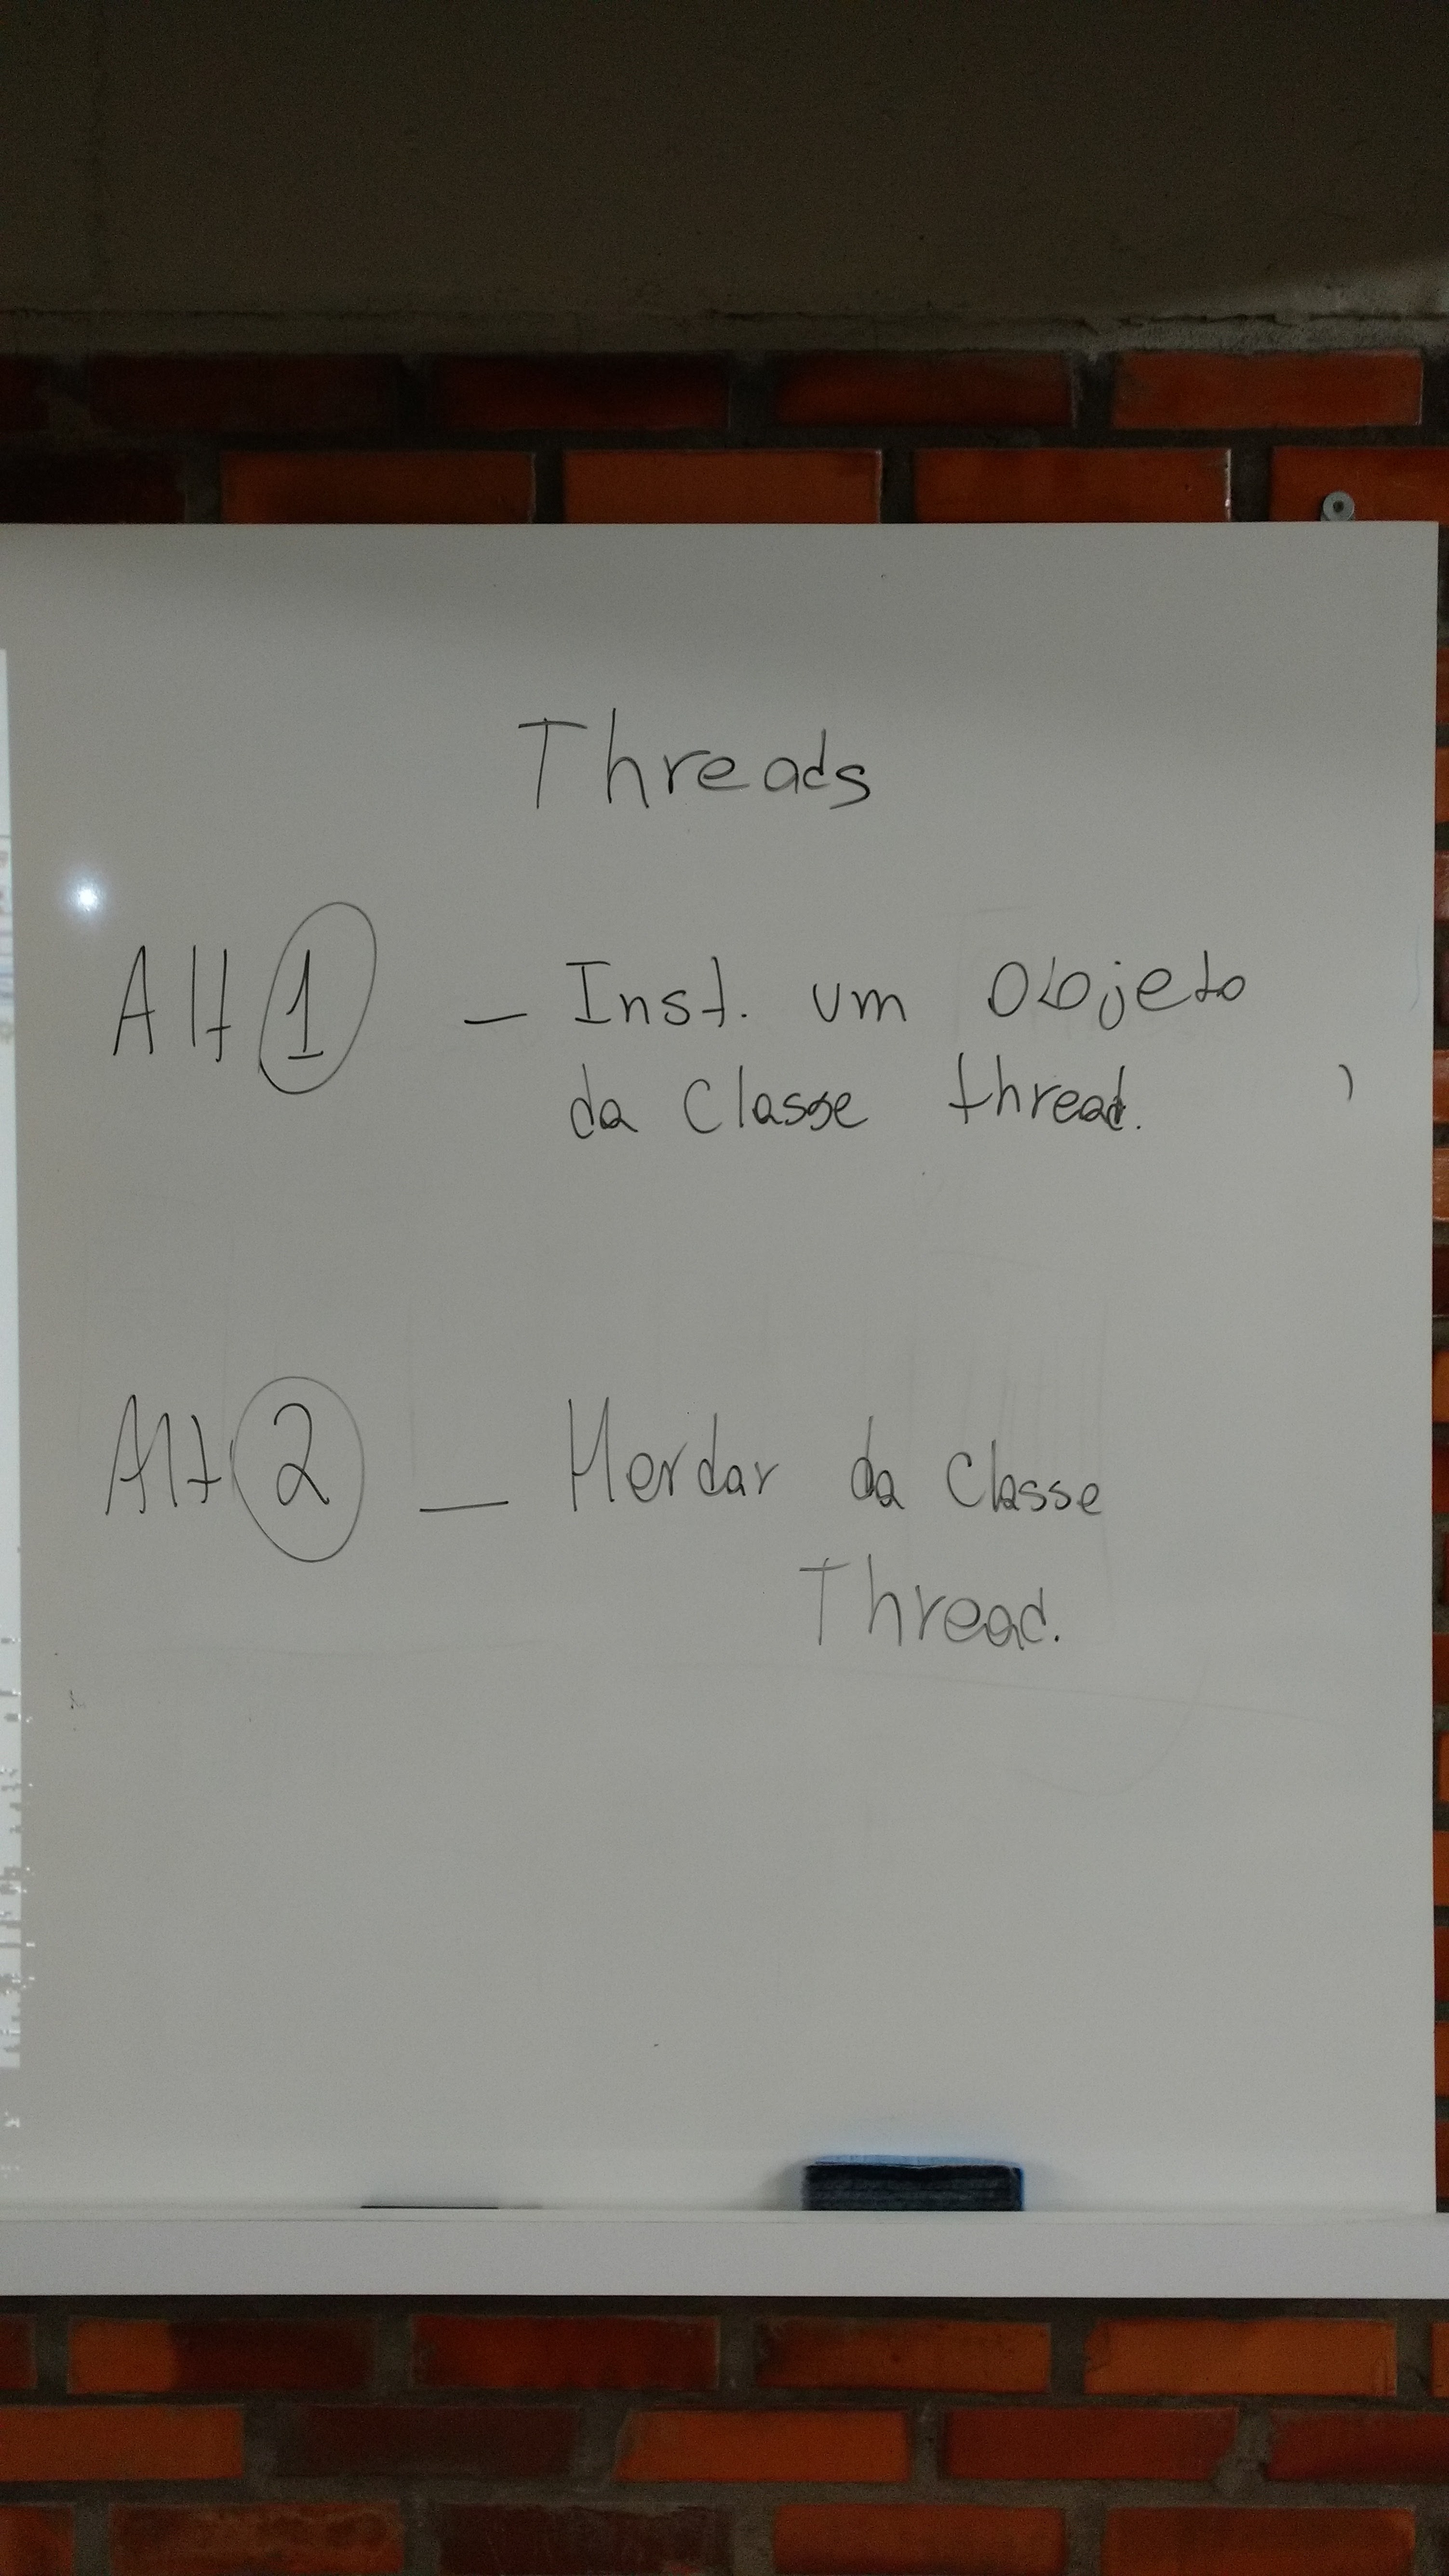 Threads
Alt 1 - Inst. um Objeto
da Classe thread.
Alt 2 - Herdar da Classe
Thread.